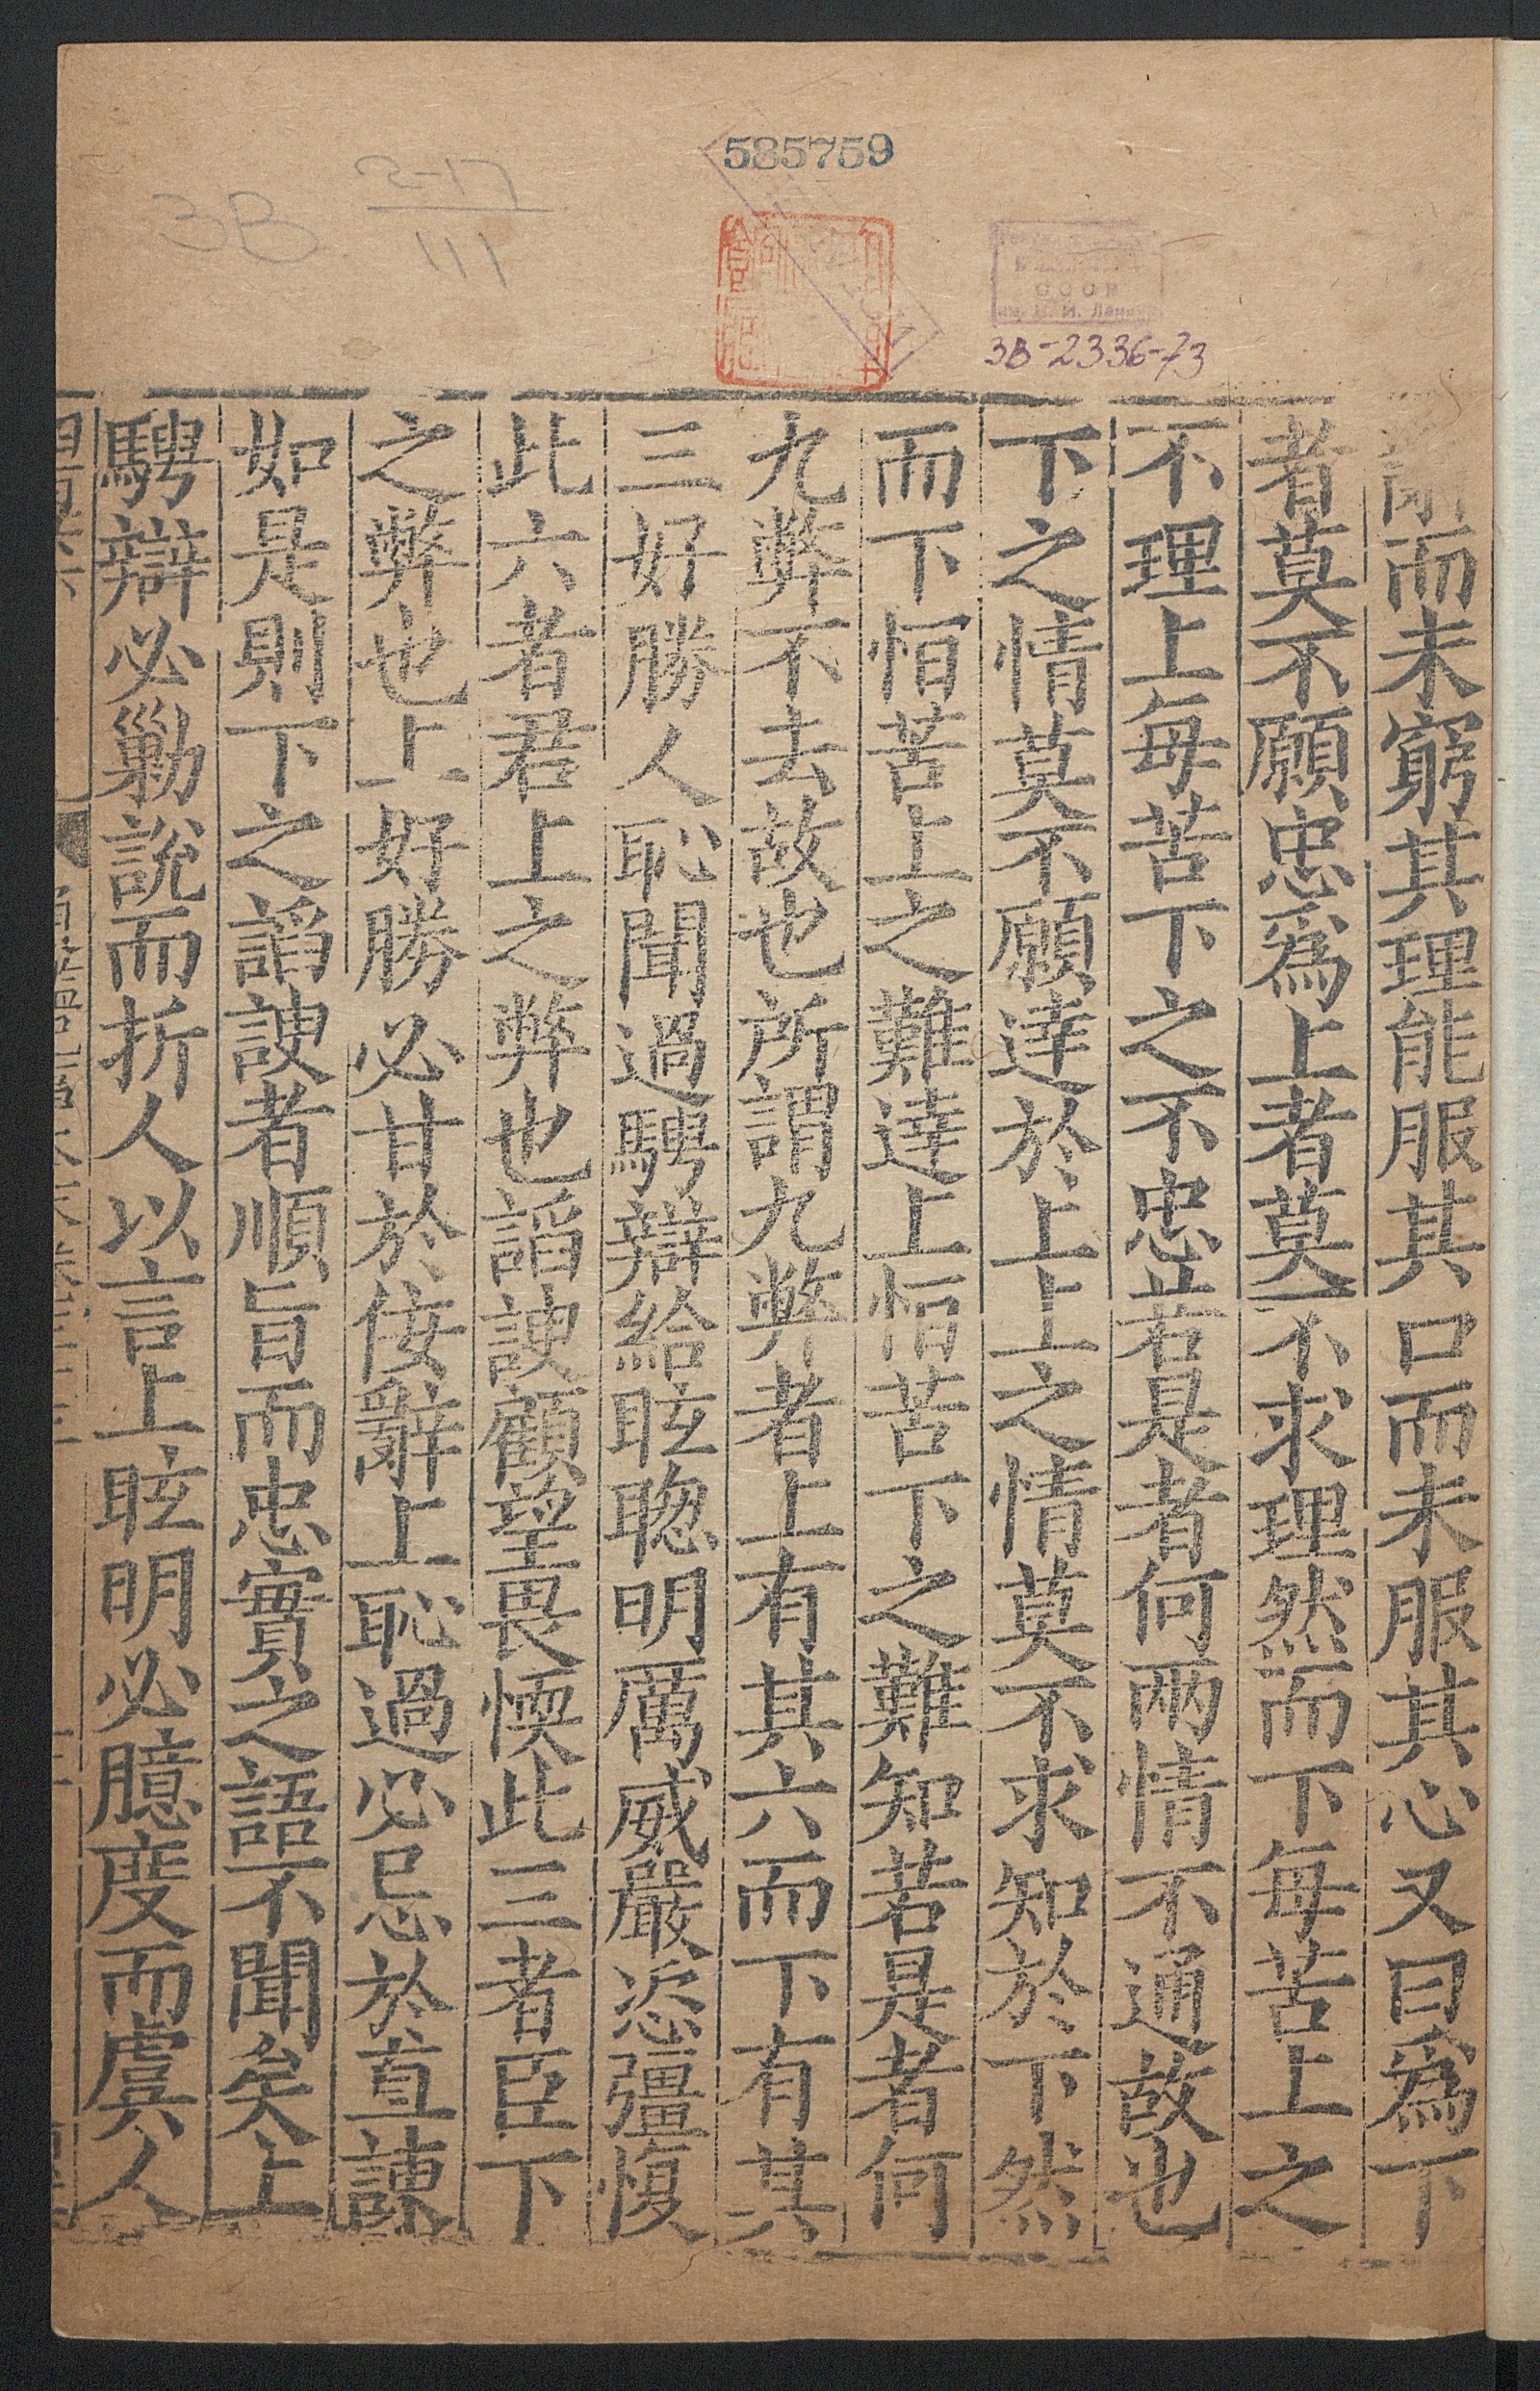 585759
3B 2-17
111
СССР
им. В. И. Ленина
3B-2336-73
辭而未窮其理能服其口而未服其心又曰爲下
者莫不願忠爲上者莫不求理然而下每苦上之
不理上每苦下之不忠若是者何兩情不通故也
下之情莫不願達於上上之情莫不求知於下然
而下恒苦上之難達上恒苦下之難知若是者何
九弊不去故也所謂九弊者上有其六而下有其
三好勝人恥聞過騁辯給眩聰明厲威嚴恣彊愎
此六者君上之弊也諂諛顧望畏愞此三者臣下
之弊也上好勝必甘於佞辭上恥過必忌於直諫
如是則下之諂諛者順旨而忠實之語不聞矣上
騁辯必勦說而折人以言上眩明必臆度而虞人